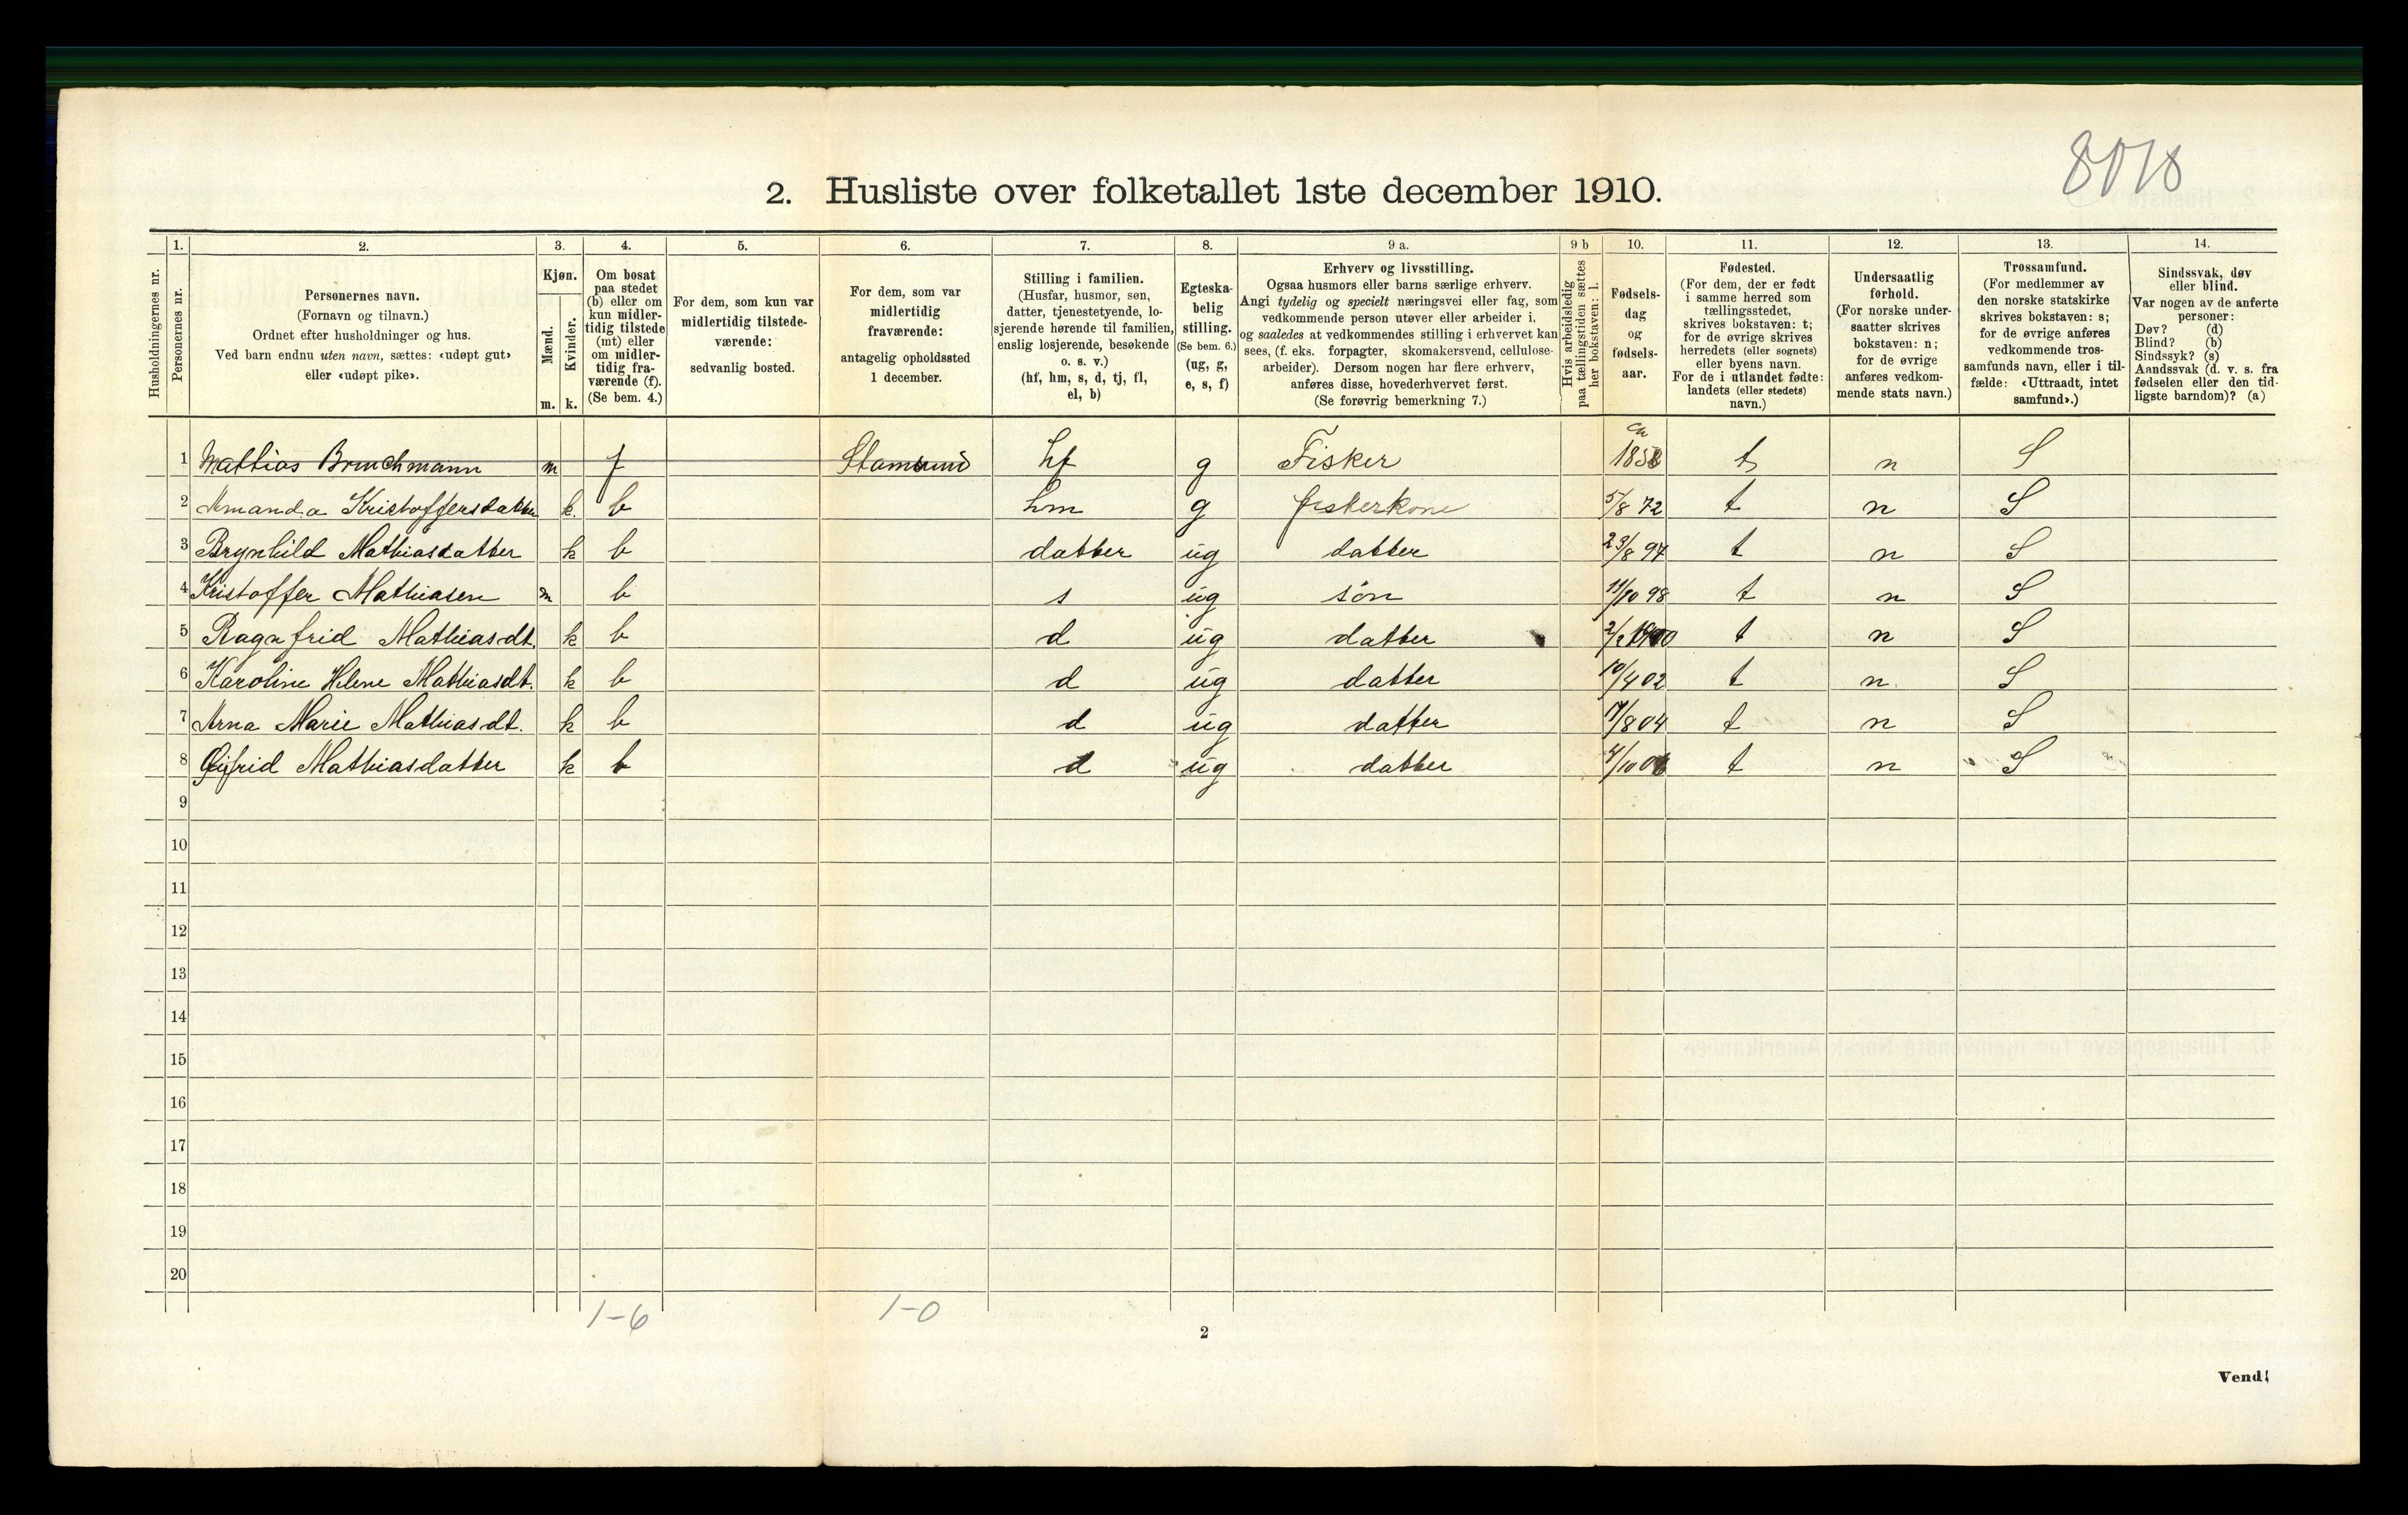 8078
2. Husliste over folketallet 1ste december 1910.
Husholdningernes nr.
1. Personernes nr.
2. Personernes navn. (Fornavn og tilnavn.) Ordnet efter husholdninger og hus. Ved barn endnu uten navn, sættes: «udøpt gut» eller «udøpt pike».
3. Kjøn. Mænd. m. Kvinder. k.
4. Om bosat paa stedet (b) eller om kun midlertidig tilstede (mt) eller om midlertidig fraværende (f). (Se bem. 4.)
5. For dem, som kun var midlertidig tilstedeværende: sedvanlig bosted.
6. For dem, som var midlertidig fraværende: antagelig opholdssted 1 december.
7. Stilling i familien. (Husfar, husmor, søn, datter, tjenestetyende, losjerende hørende til familien, enslig losjerende, besøkende o. s. v.) (hf, hm, s, d, tj, fl, el, b)
8. Egteskabelig stilling. (Se bem. 6.) (ug, g, e, s, f)
9 a. Erhverv og livsstilling. Ogsaa husmors eller barns særlige erhverv. Angi tydelig og specielt næringsvei eller fag, som vedkommende person utøver eller arbeider i, og saaledes at vedkommendes stilling i erhvervet kan sees, (f. eks. forpagter, skomakersvend, cellulosearbeider). Dersom nogen har flere erhverv, anføres disse, hovederhvervet først. (Se forøvrig bemerkning 7.)
9 b Hvis arbeidsledig paa tællingstiden sættes her bokstaven: l.
10. Fødselsdag og fødselsaar.
11. Fødested. (For dem, der er født i samme herred som tællingsstedet, skrives bokstaven: t; for de øvrige skrives herredets (eller sognets) eller byens navn. For de i utlandet fødte: landets (eller stedets) navn.)
12. Undersaatlig forhold. (For norske undersaatter skrives bokstaven: n; for de øvrige anføres vedkommende stats navn.)
13. Trossamfund. (For medlemmer av den norske statskirke skrives bokstaven: s; for de øvrige anføres vedkommende trossamfunds navn, eller i tilfælde: «Uttraadt, intet samfund».)
14. Sindssvak, døv eller blind. Var nogen av de anførte personer: Døv? (d) Blind? (b) Sindssyk? (s) Aandssvak (d. v. s. fra fødselen eller den tidligste barndom)? (a)
1 Mathias Bruchmann m f Stamsund hf g Fisker ca 1858 t n S
2 Amanda Kristoffersdatter k. b hm g fiskerkone 5/8 72 t n S
3 Brynhild Mathiasdatter k b datter ug datter 23/8 97 t n S
4 Kristoffer Mathiasen m b s ug søn 11/10 98 t n S
5 Ragnfrid Mathiasdt. k b d ug datter 2/2 1900 t n S
6 Karoline Helene Mathiasdt. k b d ug datter 10/4 02 t n. S
7 Arna Marie Mathiasdt. k b d ug datter 17/8 04 t n S
8 Mathiasdatter k b d ug datter 4/10 t n S
9
10
11
12
13
14
15
16
17
18
19
20
1-6 1-0
2
Vend!